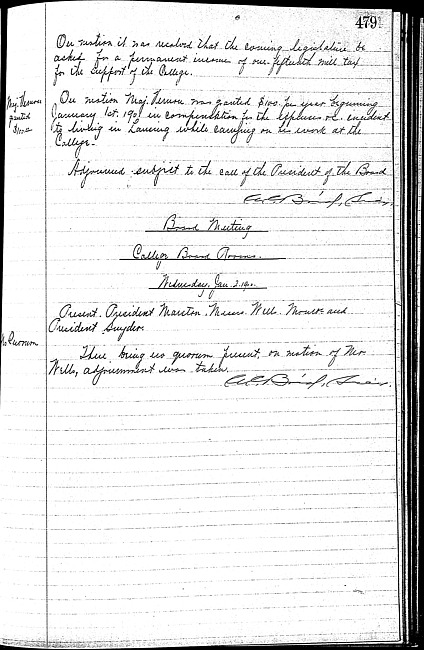 479
On motion it was resolved that the coming legislature be
asked for a permanent income of one fifteenth mill tax
for the support of the College.
Maj. Vernou
granted
$100
On motion Maj. Vernou was granted $100. per year beginning
January 1st. 190 in compensation for the expenses incident
to living in Lansing while carrying on his work at the
College.
Adjourned subject to the call of the President of the Board
A.C. Bird, Sec'y.
Board Meeting
College Board Rooms.
Wednesday, Jan. 2.
Present. President Marston, Messrs. Wells, Monroe and
President Snyder.
No Quorum
There being no quorum present, on motion of Mr.
Wells, adjournment was taken.
A.C. Bird, Sec'y.